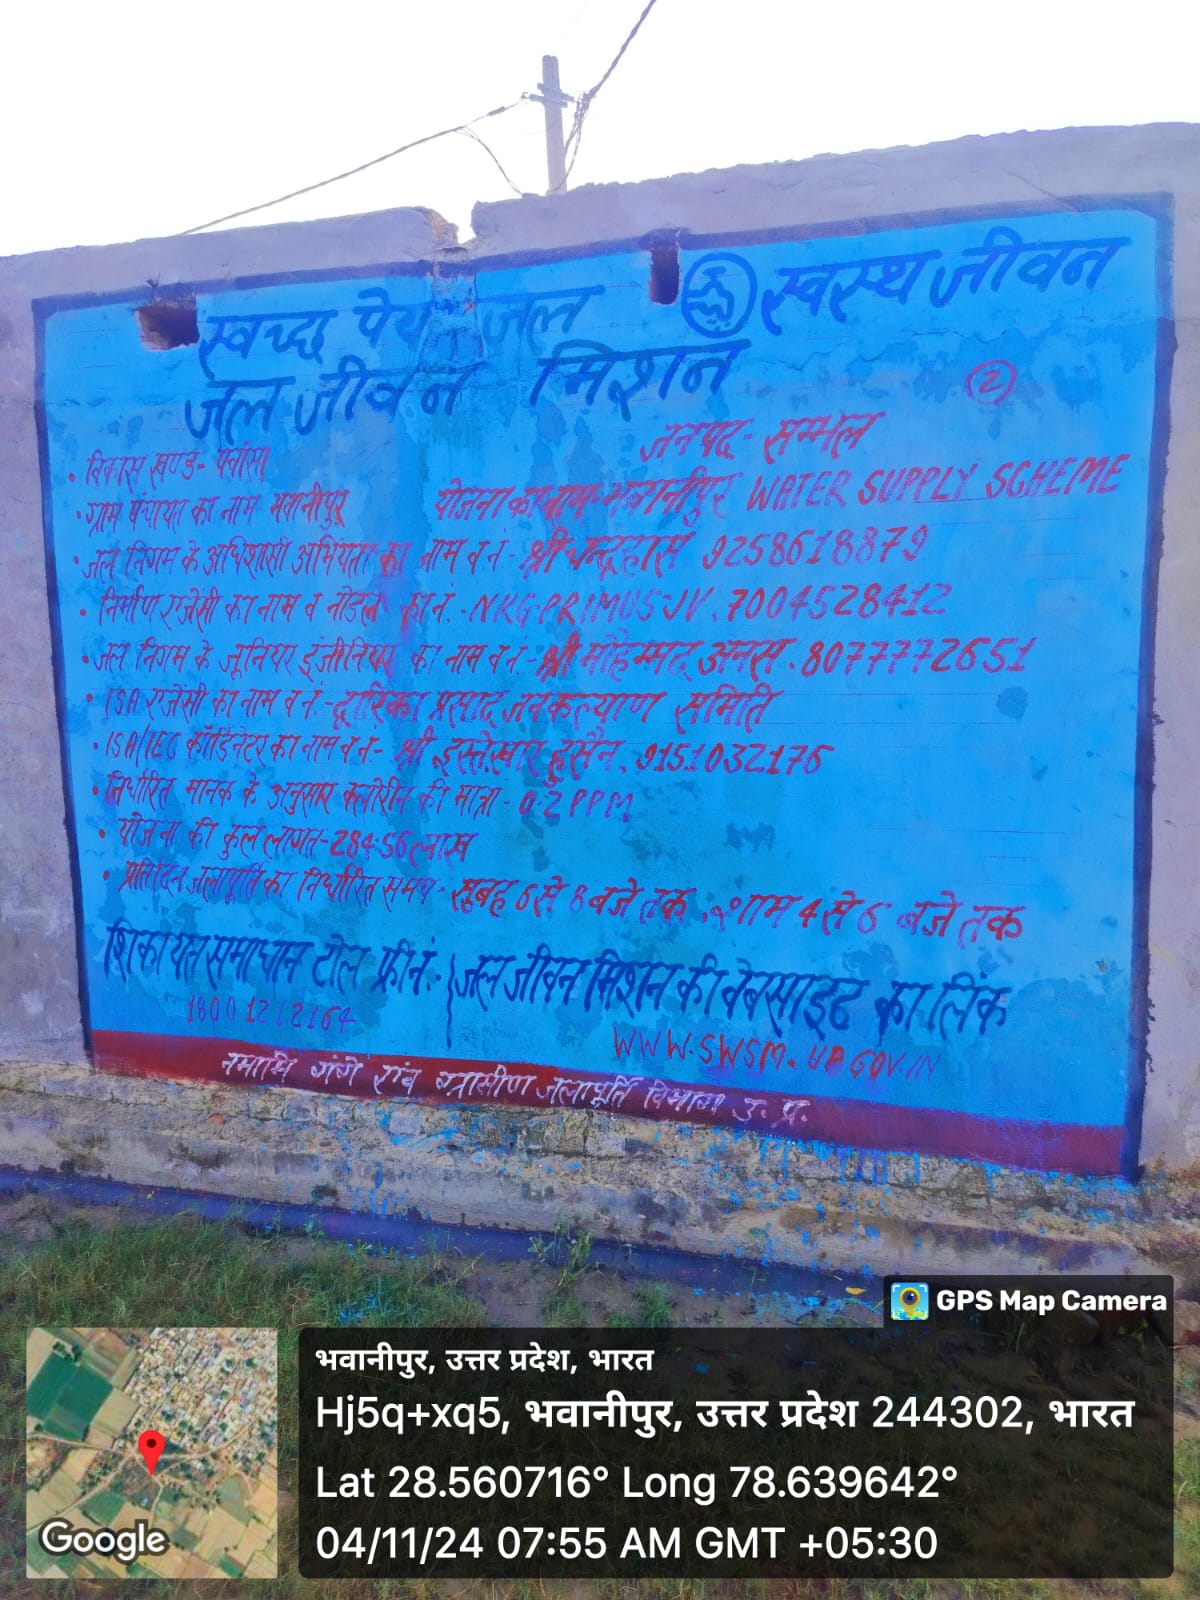 स्वच्छ पेय जल स्वस्थ जीवन
जल जीवन मिशन
2
जनपद - सम्भल
• विकास खण्ड - पवांसा
• ग्राम पंचायत का नाम भवानीपुर योजना का नाम - भवानीपुर WATER SUPPLY SCHEME
• जल निगम के अधिशासी अभियंता का नाम व नं - श्री चन्द्रहास 9258618879
• निर्माण एजेंसी का नाम व नोडल का नं. - NKG-PRIMUS-JV. 7004528412
• जल निगम के जूनियर इंजीनियर का नाम व नं - श्री मोहम्मद अनस. 8077772651
• ISA एजेंसी का नाम व नं. - द्वारिका प्रसाद जनकल्याण समिति
• ISA/IEC कॉर्डिनेटर का नाम व नं - श्री इस्तेखार हुसैन. 9151032176
• निर्धारित मानक के अनुसार क्लोरीन की मात्रा - 0.2 PPM
• योजना की कुल लागत - 284.56 लाख
• प्रतिदिन जलापूर्ति का निर्धारित समय - सुबह 6 से 8 बजे तक. शाम 4 से 6 बजे तक
शिकायत समाधान टोल फ्री नं. - जल जीवन मिशन की वेबसाइट का लिंक
1800 1212164 WWW.SWSM.UP.GOV.IN
नमामि गंगे एंव ग्रामीण जलापूर्ति विभाग उ. प्र.
GPS Map Camera
भवानीपुर, उत्तर प्रदेश, भारत
Hj5q+xq5, भवानीपुर, उत्तर प्रदेश 244302, भारत
Lat 28.560716° Long 78.639642°
04/11/24 07:55 AM GMT +05:30
Google